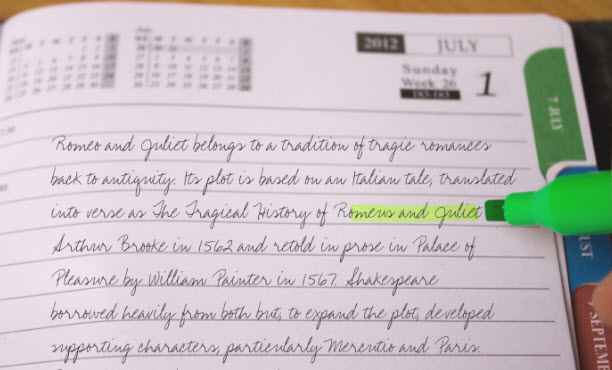 July
2012 JULY
Sunday
Week 26
1
7 JULY
Romeo and Juliet belongs to a tradition of tragic romances
back to antiquity. Its plot is based on an Italian tale, translated
into verse as The Tragical History of Romeus and Juliet
Arthur Brooke in 1562 and retold in prose in Palace of
Pleasure by William Painter in 1567. Shakespeare
borrowed heavily from both but, to expand the plot, developed
supporting characters, particularly Mercutio and Paris.
UST
SEPTEMB